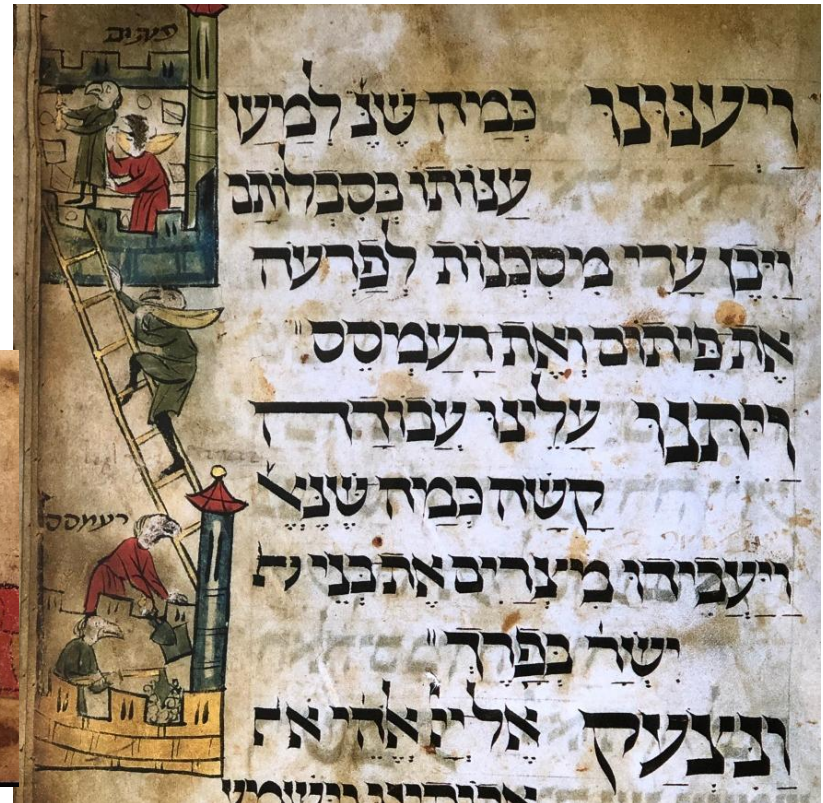 פיתום
ויענונו כמה שנ למען
ענותו בסבלותם
ויבן ערי מסכנות לפרעה
את פיתום ואת רעמסס
ויתנו עלינו עבודה
קשה כמה שנא
רעמסס
ויעבידו מצרים את בני
ישר בפרך
ונצעק אל יי אלהי
אבותינו וישמע